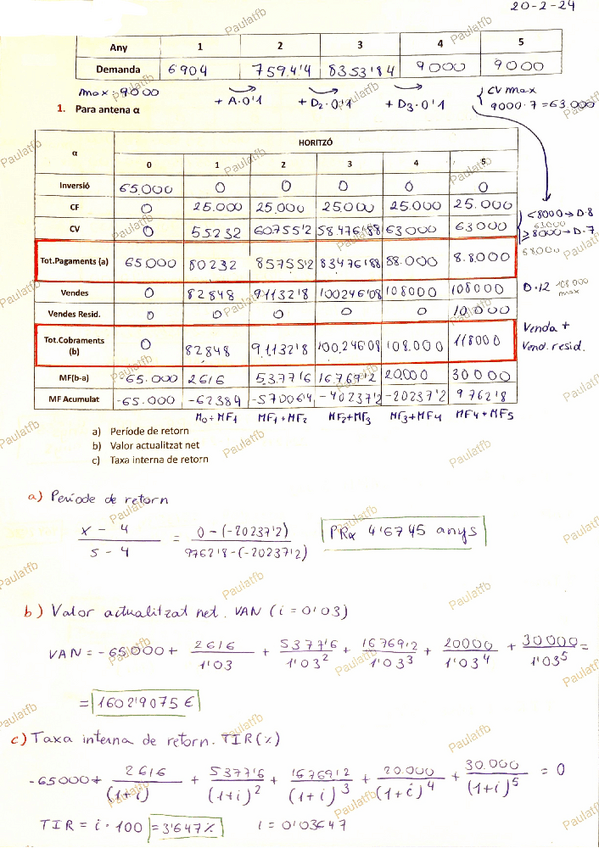 20-2-24
Any 1 2 3 4 5
Demanda 6904 7594'4 8353'84 9000 9000
max: 9000 + A·0'1 + D2·0'1 + D3·0'1
CV max
9000·7 = 63.000
1. Para antena α
α HORITZÓ
0 1 2 3 4 5
Inversió 65.000 0 0 0 0 0
CF 0 25.000 25.000 25.000 25.000 25.000
CV 0 55232 60755'2 58476'88 63000 63000
<8000 → D·8
63.000
≥8000 → D·7
Tot.Pagaments (a) 65.000 80232 85755'2 83476'88 88.000 88.000
Vendes 0 82848 91132'8 100246'08 108000 108000
D·12 108000 max
Vendes Resid. 0 0 0 0 0 10.000
Tot.Cobraments (b) 0 82848 91132'8 100.246'08 108.000 118000
Venda +
Vend. resid.
MF(b-a) -65.000 2616 5377'6 16769'2 20.000 30000
MF Acumulat -65.000 -62384 -57006'4 -40237'2 -20237'2 9762'8
M0+MF1 MF1+MF2 MF2+MF3 MF3+MF4 MF4+MF5
a) Període de retorn
b) Valor actualitzat net
c) Taxa interna de retorn
a) Període de retorn
x - 4 / 5 - 4 = 0-(-20237'2) / 9762'8-(-20237'2) PRα 4'6745 anys
b) Valor actualitzat net. VAN (i = 0'03)
VAN = -65.000 + 2616 / 1'03 + 5377'6 / 1'03² + 16769'2 / 1'03³ + 20000 / 1'03⁴ + 30.000 / 1'03⁵ =
= 1602'9075 €
c) Taxa interna de retorn. TIR(%)
-65000 + 2616 / (1+i) + 5377'6 / (1+i)² + 16769'2 / (1+i)³ + 20.000 / (1+i)⁴ + 30.000 / (1+i)⁵ = 0
TIR = i·100 = 3'647% i = 0'03647
Paulatfb